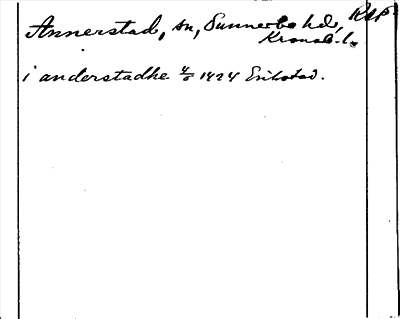 Annerstad, sn, Sunnerbo hd, RAP.
Kronob. l.
i anderstadhe 4/6 1424 Erikstad.